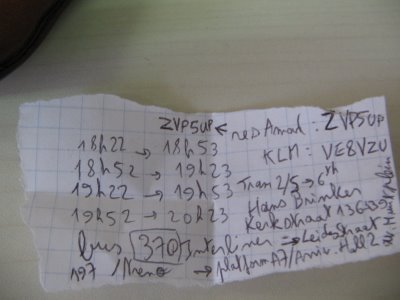 ZVP5UP ← resAmad: ZVP5UP
18h22 → 18h53 KLM: VE8VZU
18h52 → 19h23
19h22 → 19h53 Tram 2/5 → 6th
19h52 → 20h23 Hans Brinker
Kerkstraat 136
bus 370 Interliner → Leidsestraat
197 / → platform A7/Arriv. Hall 2